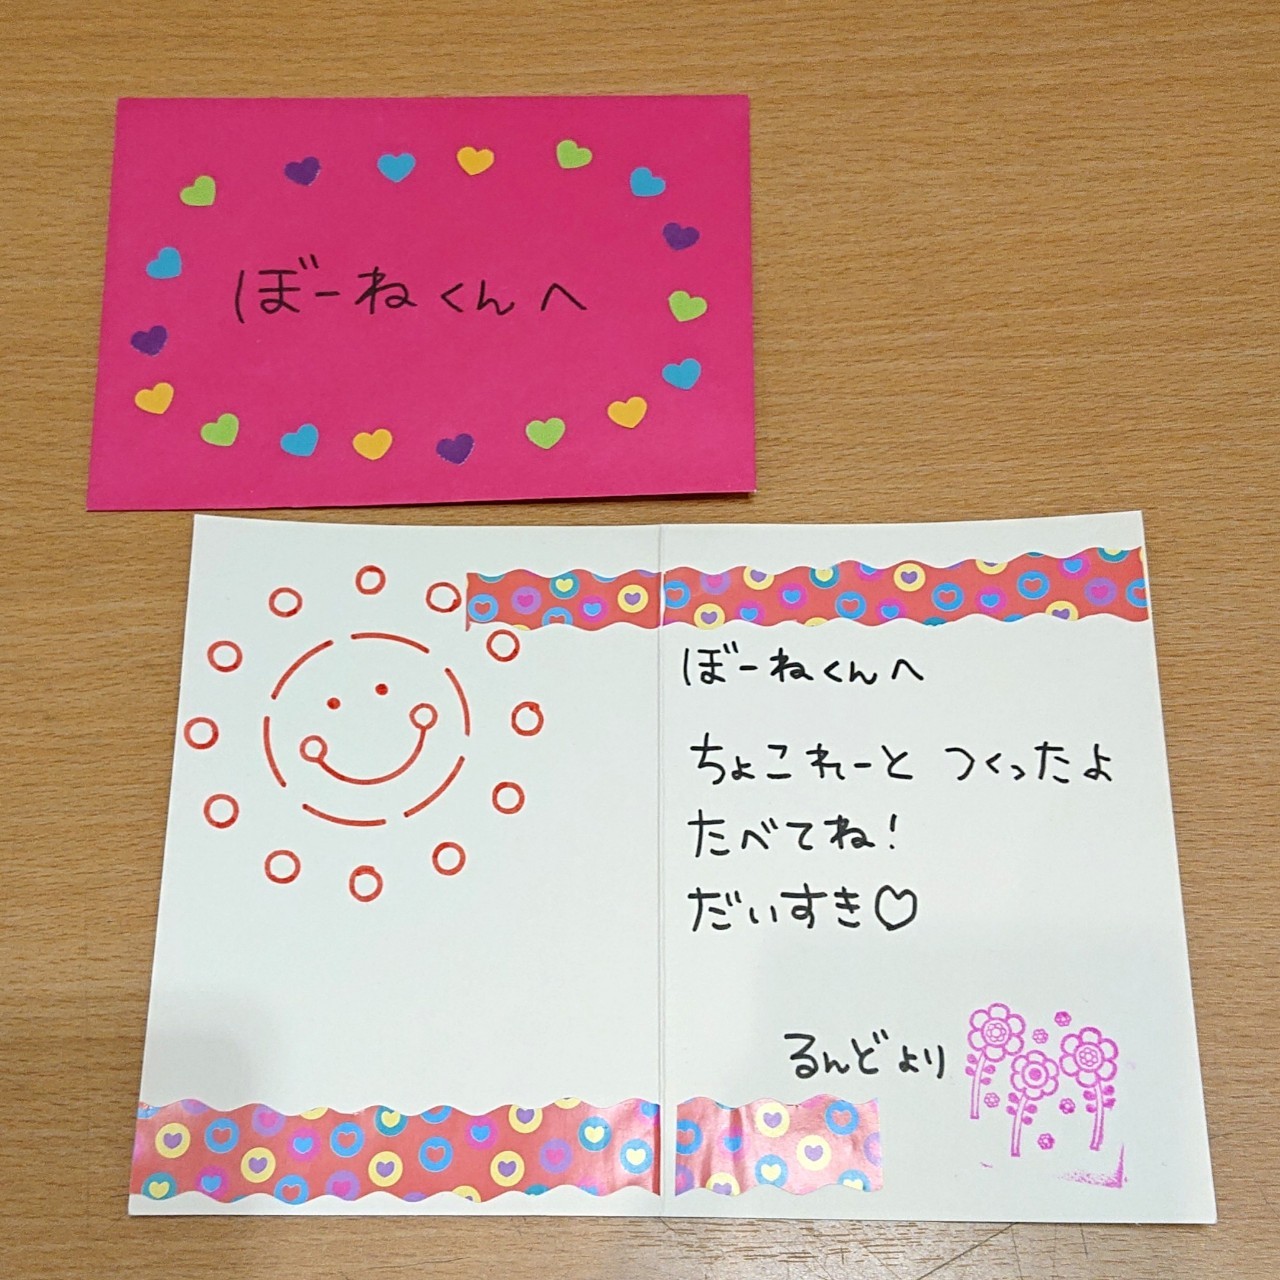 ぼーねくんへ
ぼーねくんへ
ちょこれーと つくったよ
たべてね!
だいすき♡
るんどより